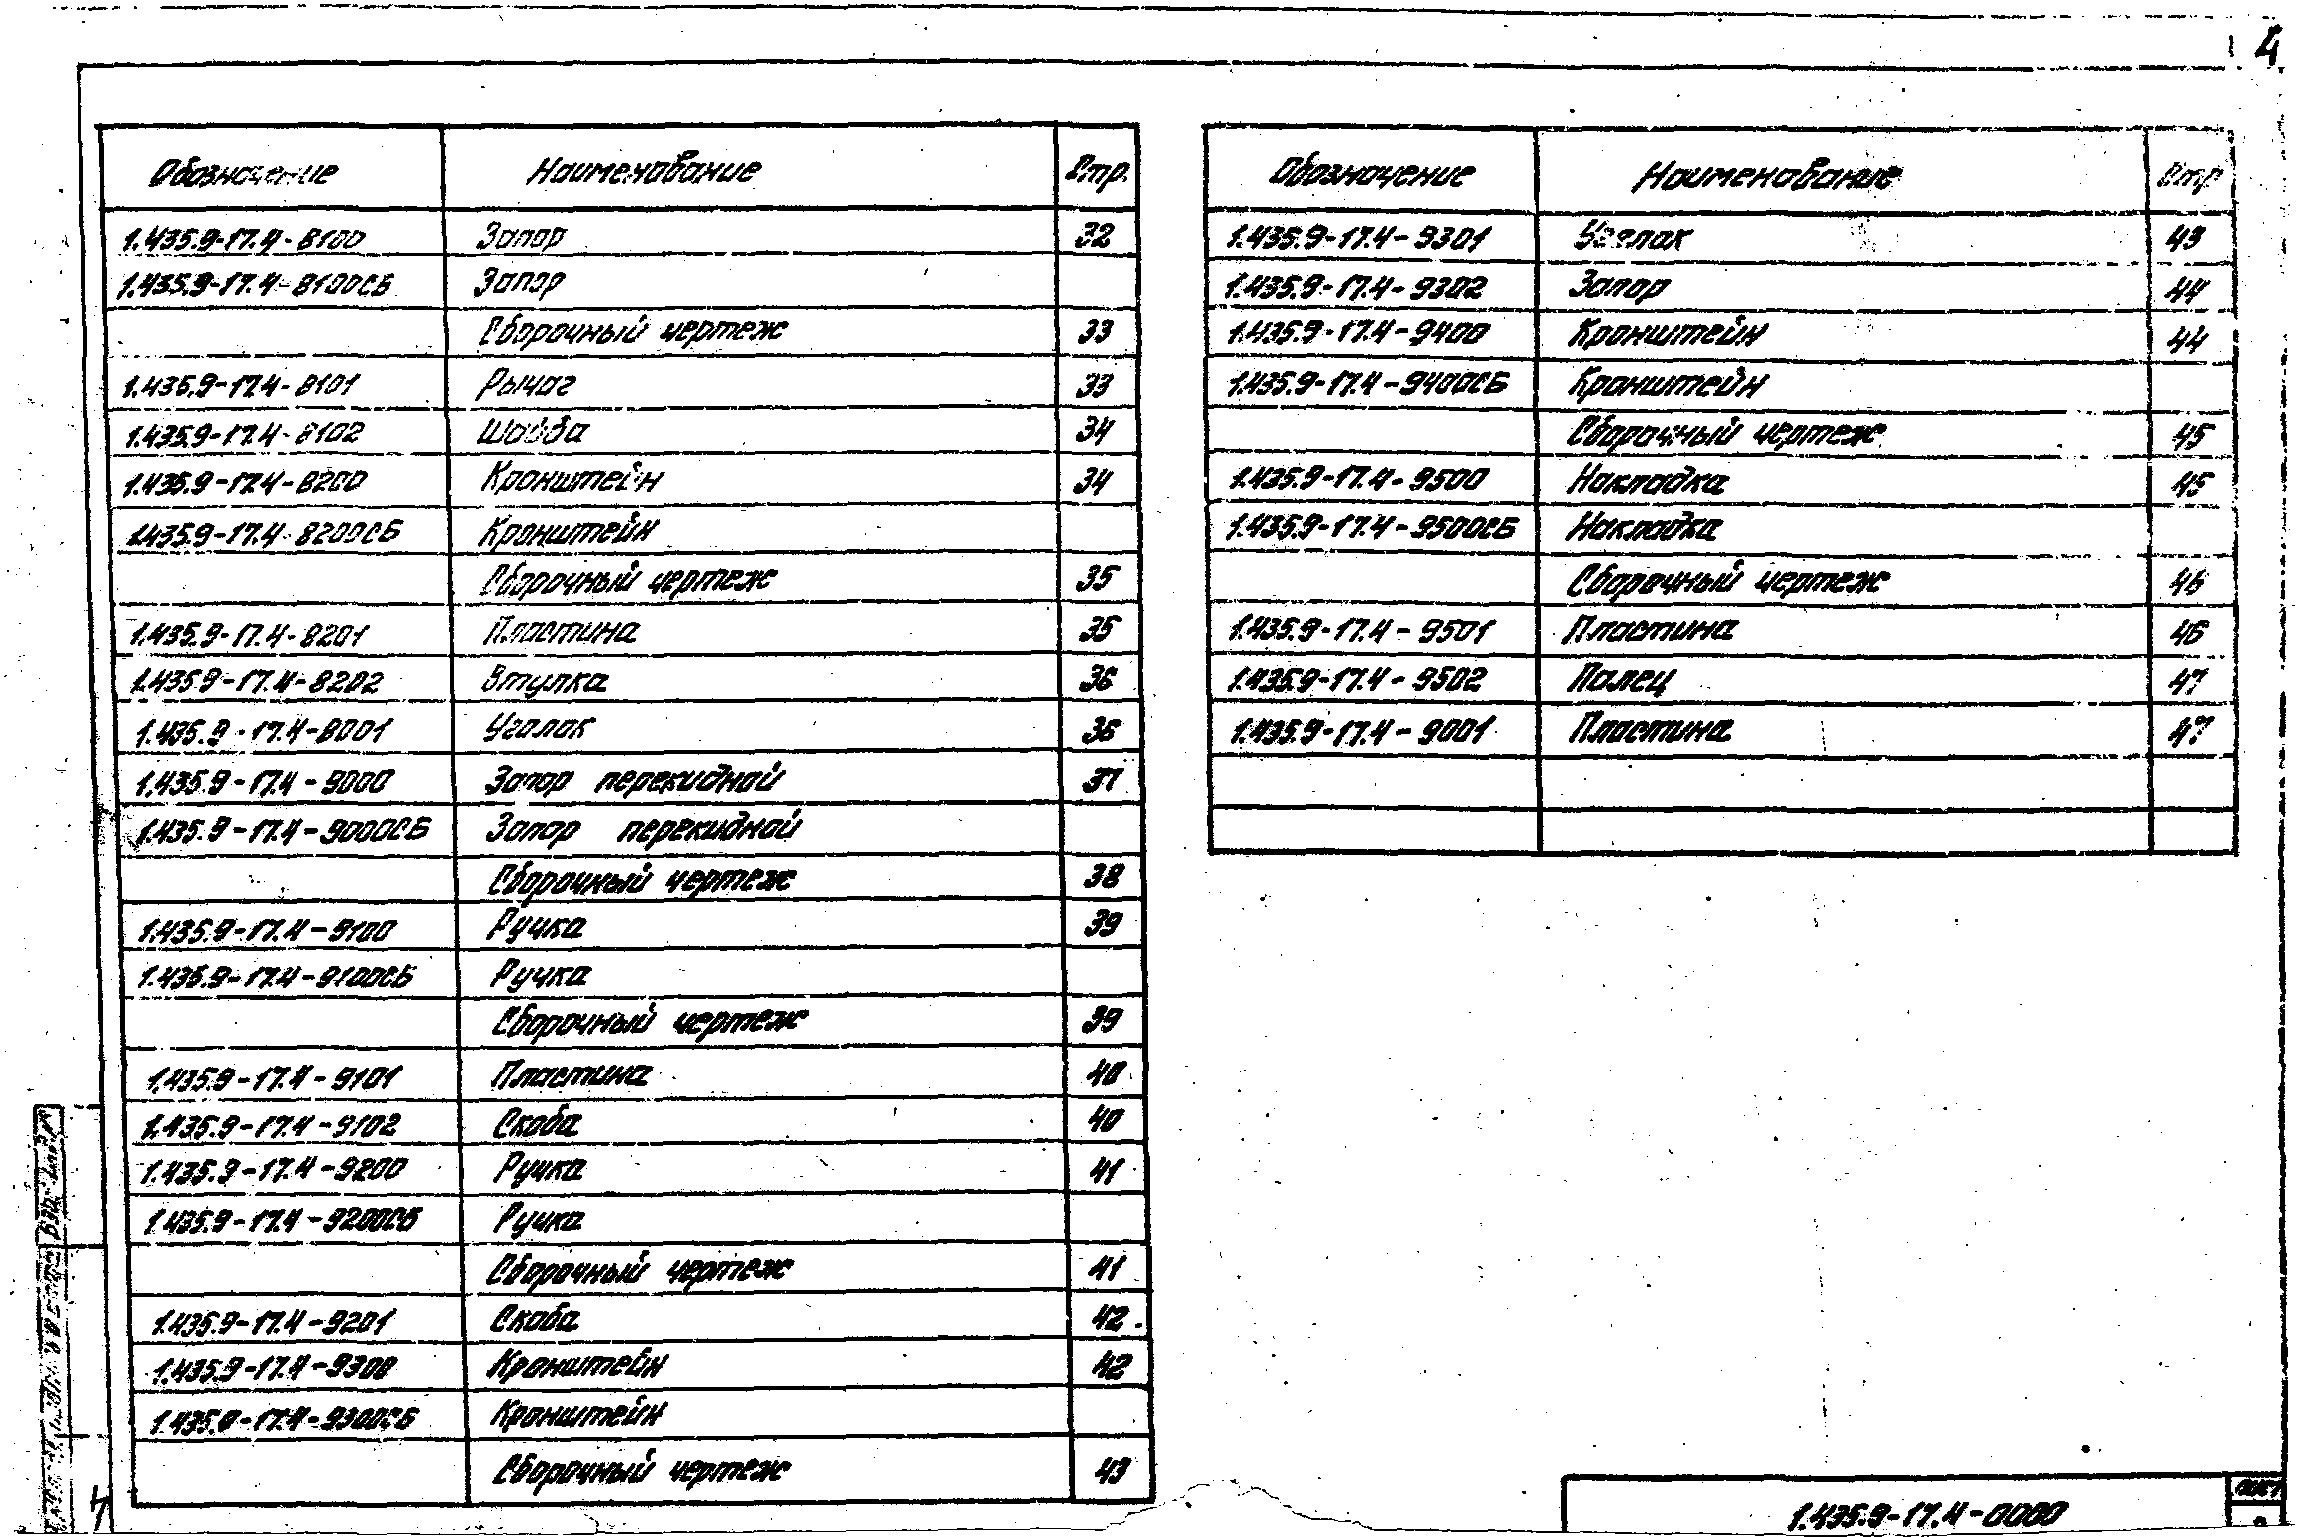 4
Обозначение Наименование Стр.
1.435.9-17.4-8100 Запор 32
1.435.9-17.4-8100СБ Запор
Сборочный чертеж 33
1.435.9-17.4-8101 Рычаг 33
1.435.9-17.4-8102 Шайба 34
1.435.9-17.4-8200 Кронштейн 34
1.435.9-17.4-8200СБ Кронштейн
Сборочный чертеж 35
1.435.9-17.4-8201 Пластина 35
1.435.9-17.4-8202 Втулка 36
1.435.9-17.4-8001 Уголок 36
1.435.9-17.4-9000 Запор перекидной 37
1.435.9-17.4-9000СБ Запор перекидной
Сборочный чертеж 38
1.435.9-17.4-9100 Ручка 39
1.435.9-17.4-9100СБ Ручка
Сборочный чертеж 39
1.435.9-17.4-9101 Пластина 40
1.435.9-17.4-9102 Скоба 40
1.435.9-17.4-9200 Ручка 41
1.435.9-17.4-9200СБ Ручка
Сборочный чертеж 41
1.435.9-17.4-9201 Скоба 42
1.435.9-17.4-9300 Кронштейн 42
1.435.9-17.4-9300СБ Кронштейн
Сборочный чертеж 43
Обозначение Наименование Стр
1.435.9-17.4-9301 Уголок 43
1.435.9-17.4-9302 Запор 44
1.435.9-17.4-9400 Кронштейн 44
1.435.9-17.4-9400СБ Кронштейн
Сборочный чертеж 45
1.435.9-17.4-9500 Накладка 45
1.435.9-17.4-9500СБ Накладка
Сборочный чертеж 46
1.435.9-17.4-9501 Пластина 46
1.435.9-17.4-9502 Палец 47
1.435.9-17.4-9001 Пластина 47
1.435.9-17.4-0000
Лист